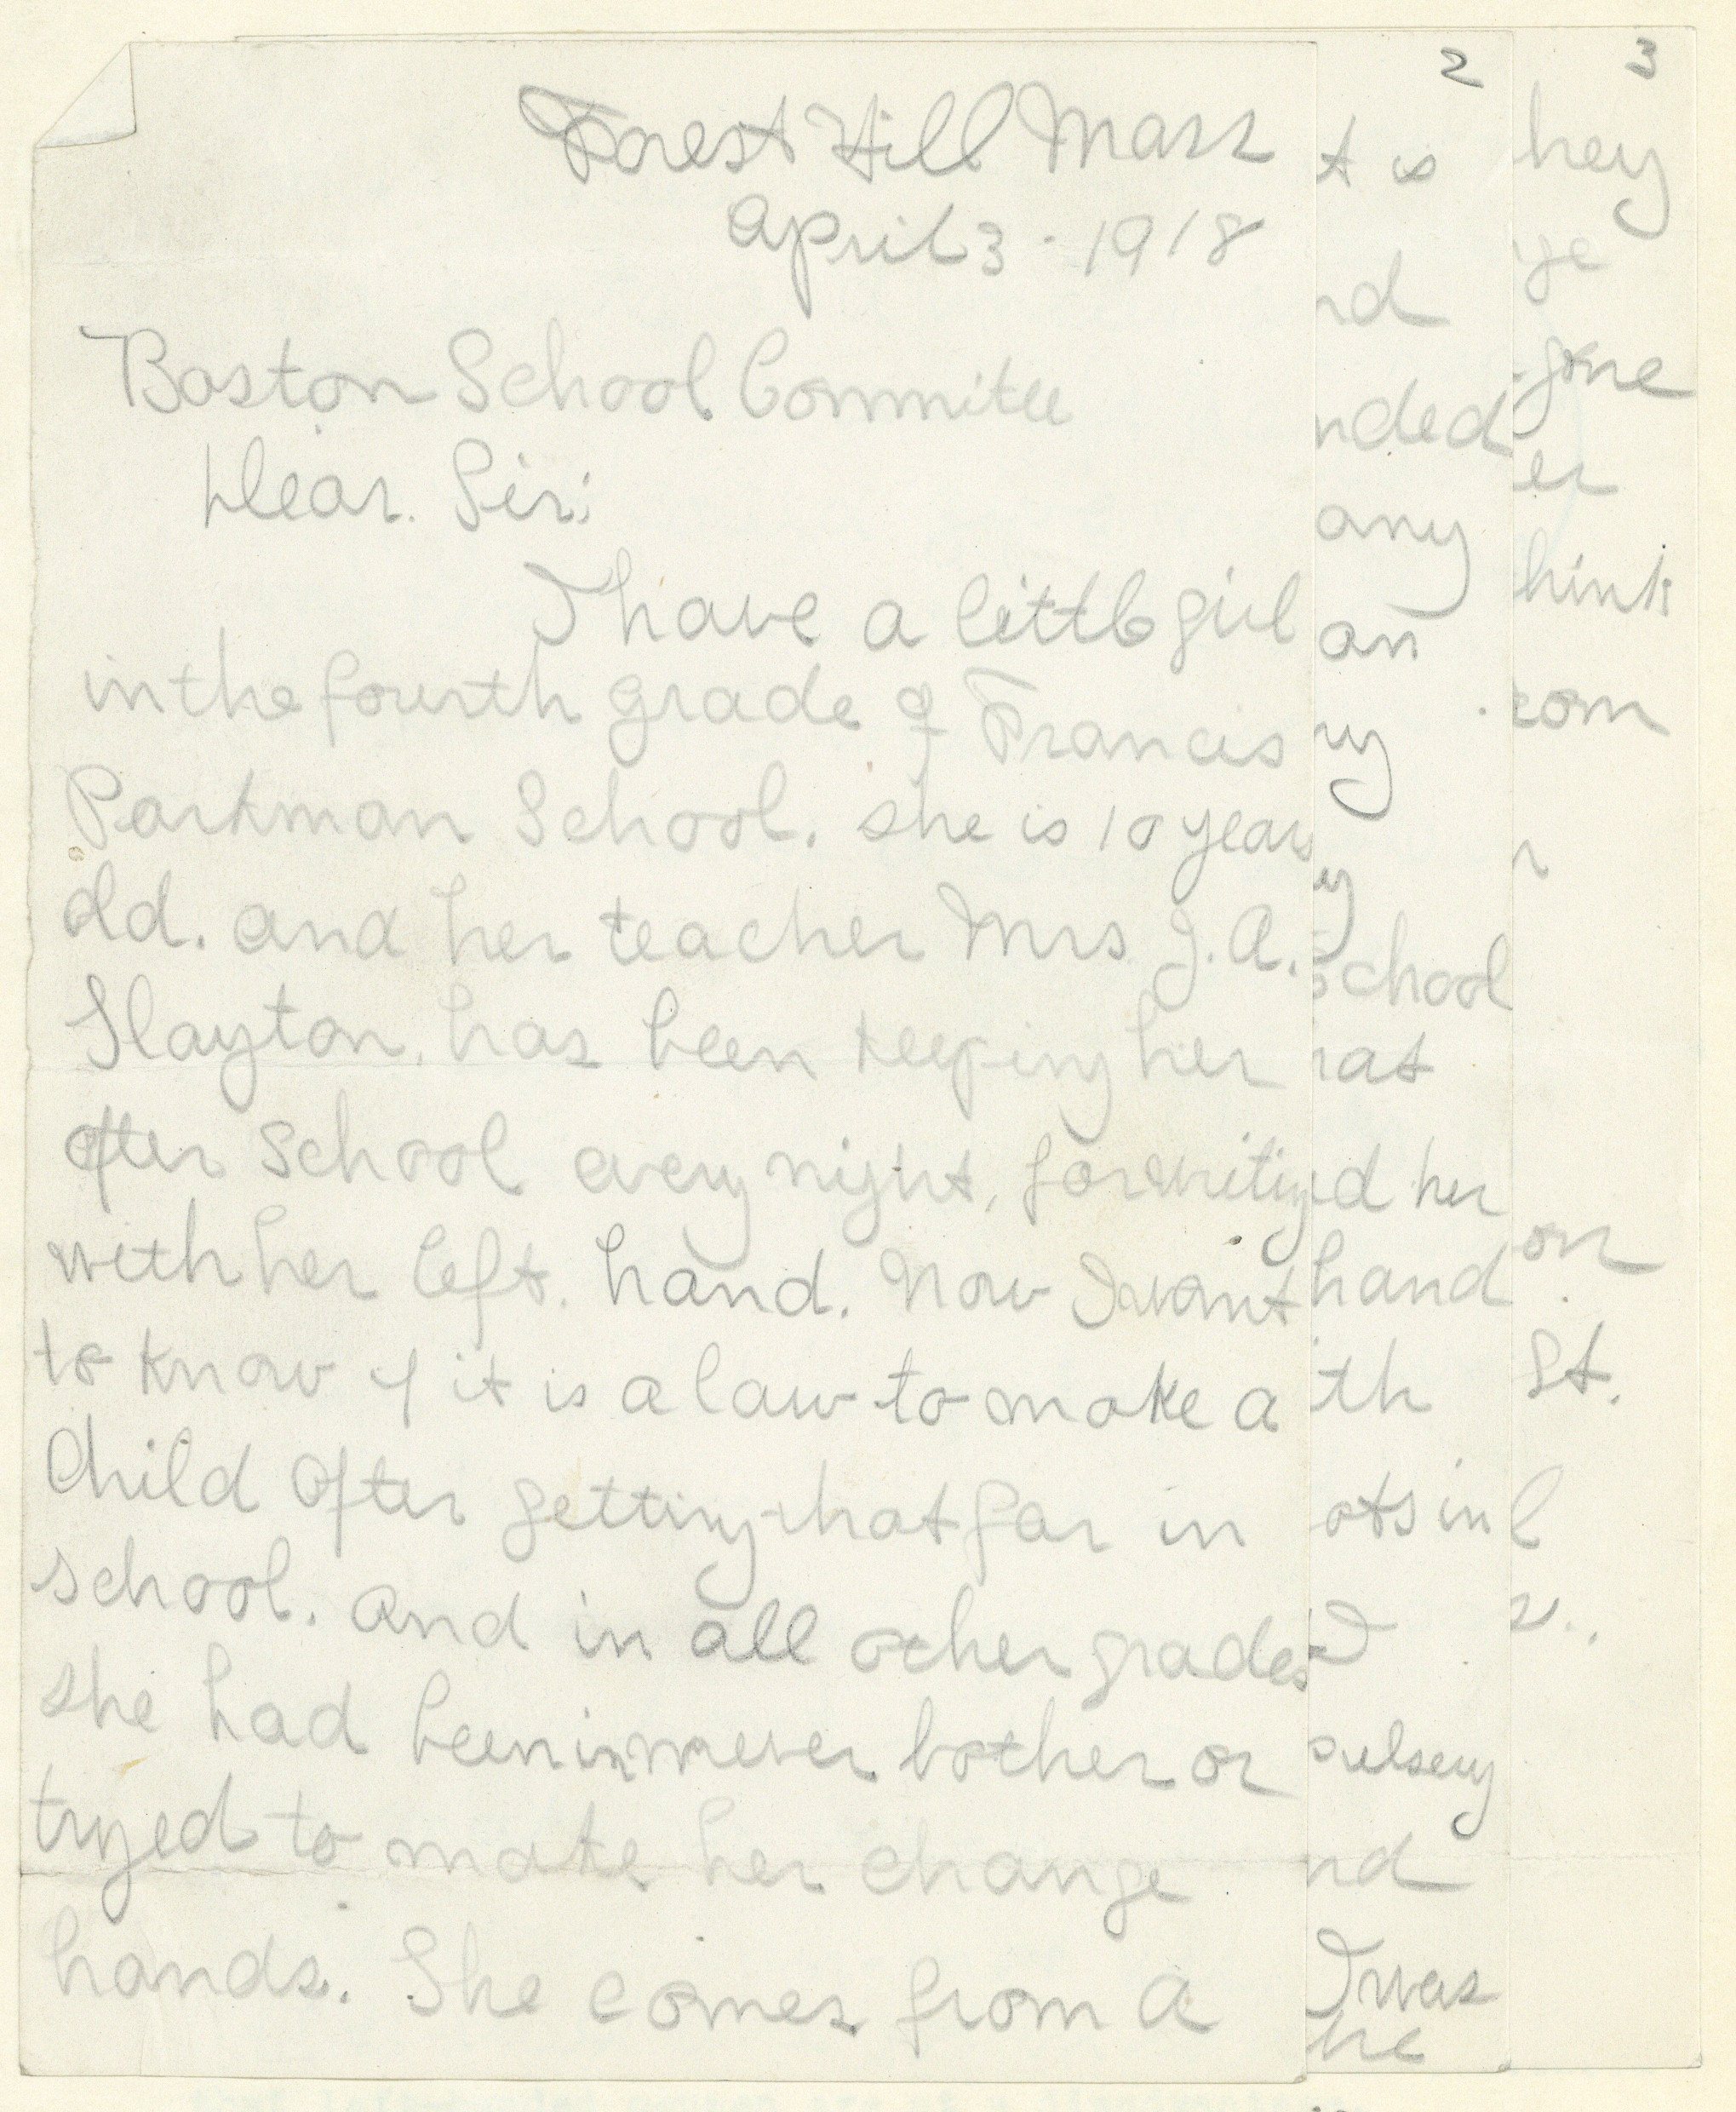 Forest Hill Mass
April 3 - 1918
Boston School Commitee
Dear. Sir:
I have a little girl
in the fourth grade of Francis
Parkman School. she is 10 years
old. and her teacher Mrs J. A.
Slayton, has been keeping her
after school every night, for writing
with her left. hand. Now I want
to know if it is a law to make a
Child after getting that far in
school. and in all other grades
she had been never bother or
tryed to make her change
hands. She comes from a
2
t is
nd
nded
any
an
ry
y
School
hat
d her
hand
ith
ots in
I
pulsery
nd
I was
he
3
hey
ge
gone
er
hink
rom
n
on
St.
l
s..